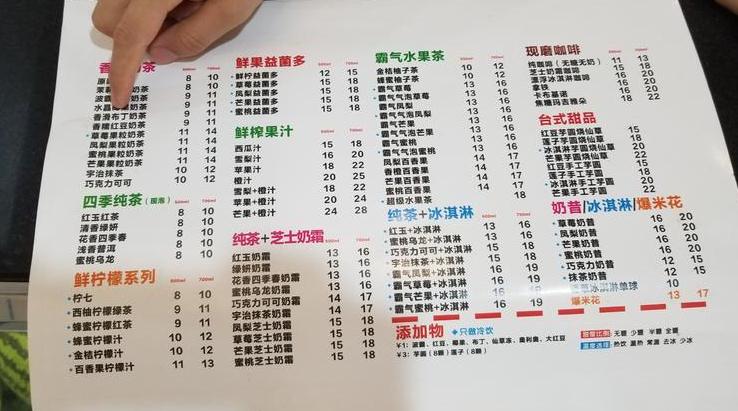 奶茶
8 10
奶茶 8 10
奶茶 9 11
奶茶 9 11
香滑布丁奶茶 9 11
香糯红豆奶茶 9 11
·草莓果粒奶茶 11 14
凤梨果粒奶茶 11 14
蜜桃果粒奶茶 11 14
芒果果粒奶茶 11 14
宇治抹茶 10 12
巧克力可可 10 12
四季纯茶(现泡) 500ml 700ml
红玉红茶 8 10
清香绿妍 8 10
花香四季春 8 10
浅香普洱 8 10
蜜桃乌龙 8 10
鲜柠檬系列 500ml 700ml
·柠七 8 10
·西柚柠檬绿茶 9 11
·蜂蜜柠檬红茶 9 11
·蜂蜜柠檬汁 10 12
·金桔柠檬汁 10 12
·百香果柠檬汁 11 13
鲜果益菌多 500ml 700ml
鲜柠益菌多 12 15
·草莓益菌多 15 18
凤梨益菌多 15 18
·芒果益菌多 15 18
蜜桃益菌多 15 18
鲜榨果汁 500ml 700ml
西瓜汁 15 18
雪梨汁 16 20
苹果汁 18 22
橙汁 20 25
雪梨+橙汁 18 22
苹果+橙汁 20 24
芒果+橙汁 24 28
纯茶+芝士奶霜 500ml 700ml
红玉奶霜 13 16
绿妍奶霜 13 16
花香四季春奶霜 13 16
蜜桃乌龙奶霜 13 16
巧克力可可奶霜 14 17
宇治抹茶奶霜 14 17
凤梨芝士奶霜 15 18
草莓芝士奶霜 15 18
芒果芝士奶霜 15 18
蜜桃芝士奶霜 15 18
霸气水果茶 500ml 700ml
金桔柚子茶 10 12
蜂蜜柚子茶 10 12
·霸气草莓 13 16
·霸气气泡草莓 13 16
·霸气凤梨 13 16
·霸气气泡凤梨 13 16
·霸气芒果 13 16
·霸气气泡芒果 13 16
·霸气蜜桃 13 16
·霸气气泡蜜桃 13 16
凤梨百香果 14 17
香橙百香果 14 17
芒果百香果 14 17
蜜桃百香果 14 17
·超级水果茶 18
纯茶+冰淇淋 500ml 700ml
·红玉+冰淇淋 13 16
·蜜桃乌龙+冰淇淋 13 16
·巧克力可可+冰淇淋 15 18
·宇治抹茶+冰淇淋 15 18
·霸气凤梨+冰淇淋 16 19
·霸气草莓+冰淇淋 16 19
·霸气蜜桃+冰淇淋 16 19
·霸气芒果+冰淇淋 16 19
添加物 ◆只做冷饮
¥1:波霸、红豆、椰果、布丁、仙草冻、奥利奥、大红豆
¥3:芋圆(8颗)莲子(8颗)
现磨咖啡 500ml 700ml
纯咖啡(无糖无奶) 11 13
芝士奶霜咖啡 15 18
漂浮冰淇淋咖啡 16 20
拿铁 16 20
卡布基诺 16 20
焦糖玛吉雅朵 18 22
台式甜品
红豆芋圆烧仙草 15
莲子芋圆烧仙草 18
·冰淇淋芋圆烧仙草 20
芒果芋圆烧仙草 22
红豆手工芋圆 15
莲子手工芋圆 18
·冰淇淋手工芋圆 20
芒果手工芋圆 22
奶昔/冰淇淋/爆米花
·草莓奶昔 16 20
·凤梨奶昔 16 20
·芒果奶昔 16 20
·蜜桃奶昔 16 20
·巧克力奶昔 12 15
·抹茶奶昔 12 15
冰淇淋单球 10
爆米花 13 17
甜度比例:无糖 少糖 半糖 全糖
温度选择:热饮 温热 常温 去冰 少冰